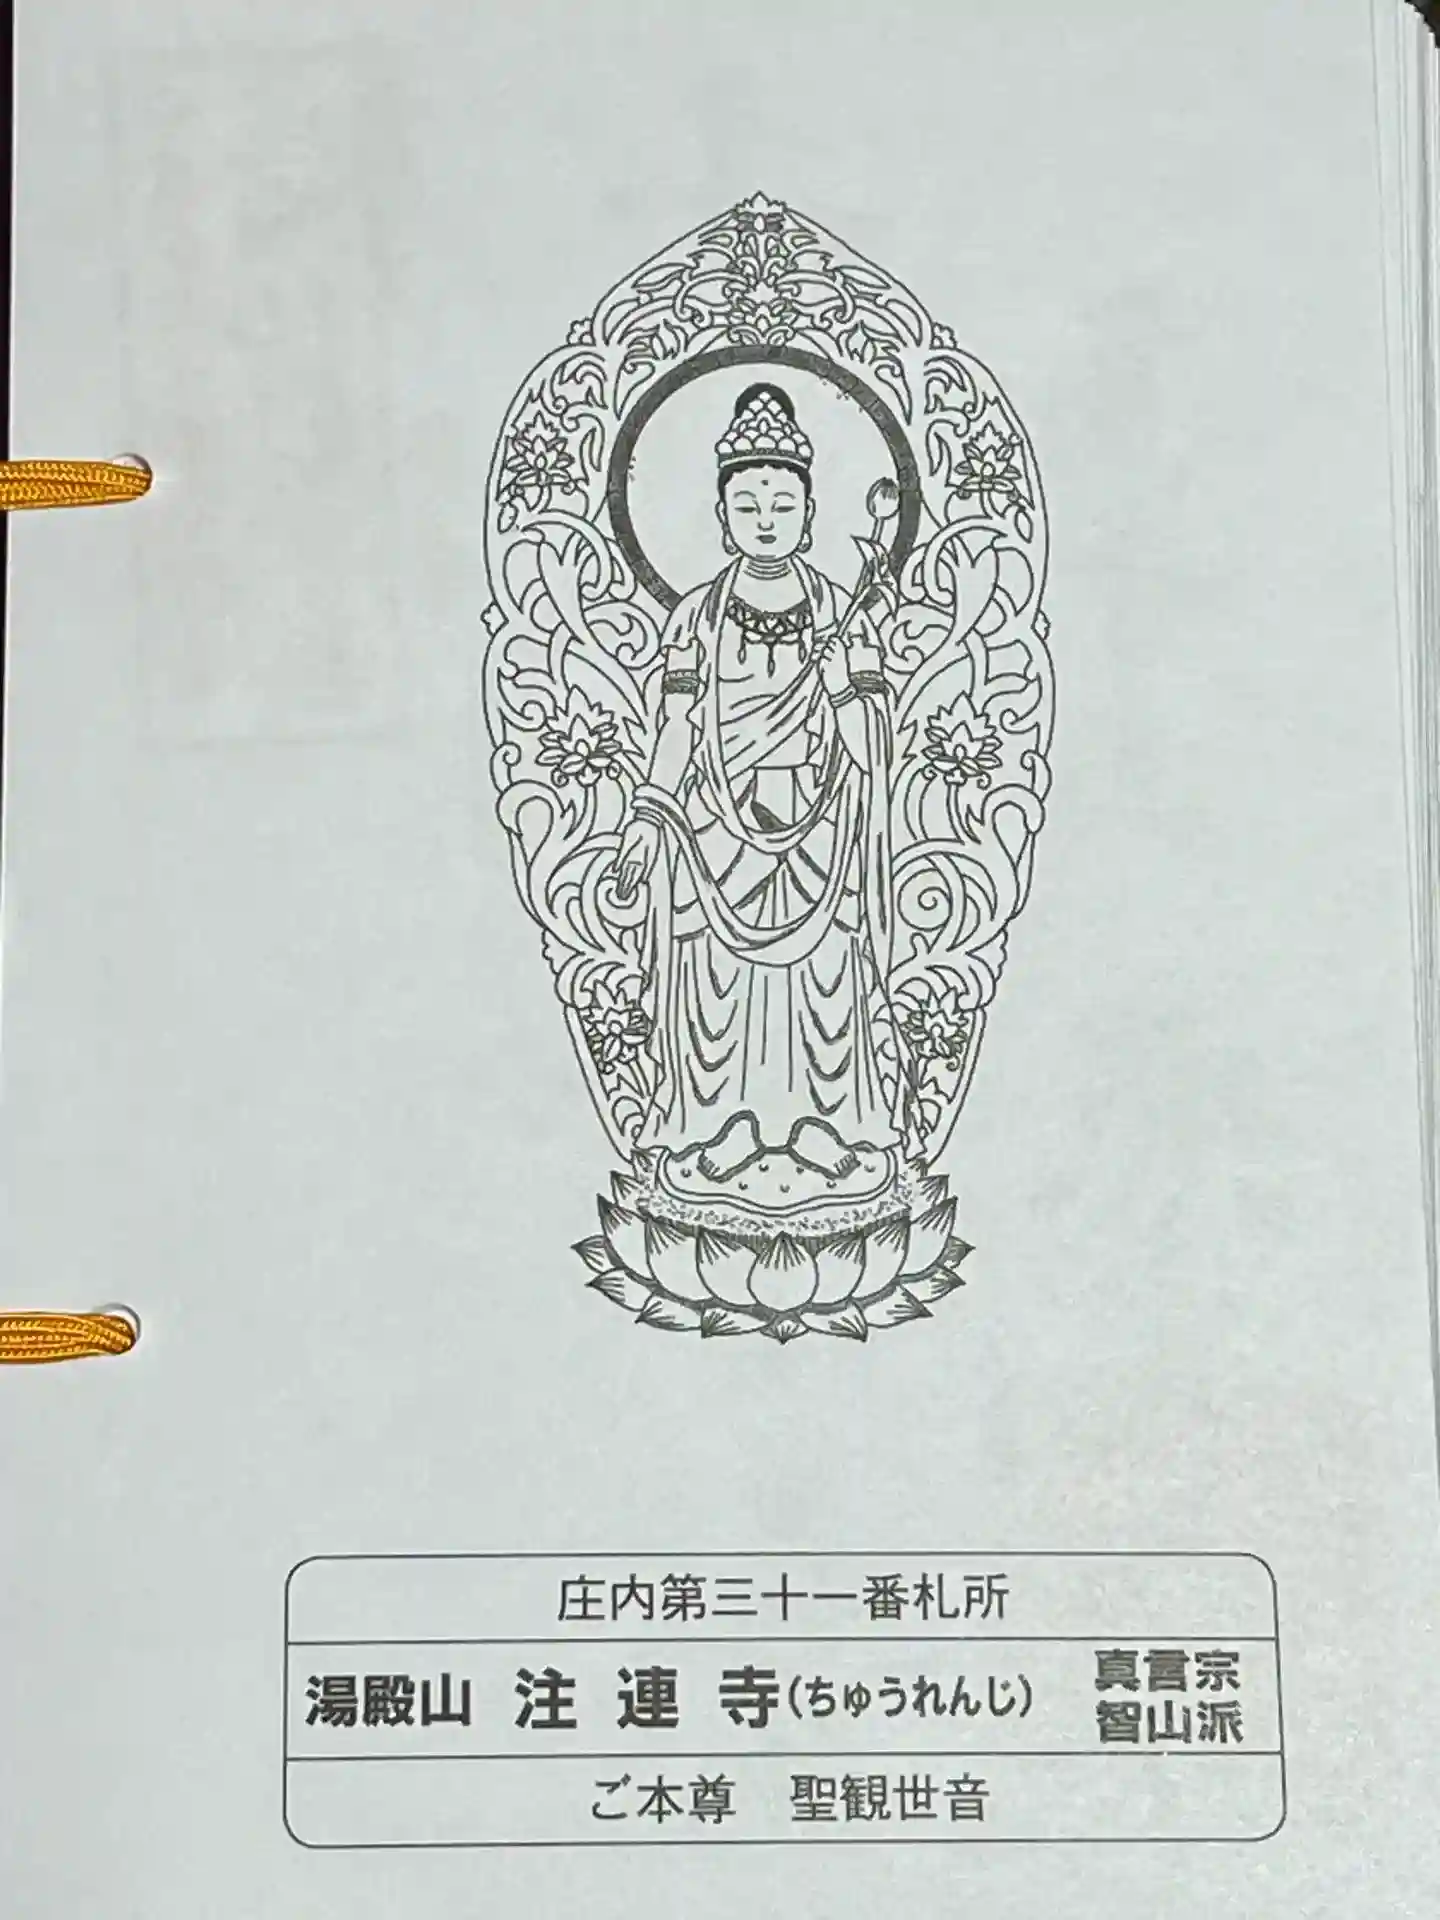 庄内第三十一番札所
湯殿山 注連寺(ちゅうれんじ) 真言宗 智山派
ご本尊 聖観世音